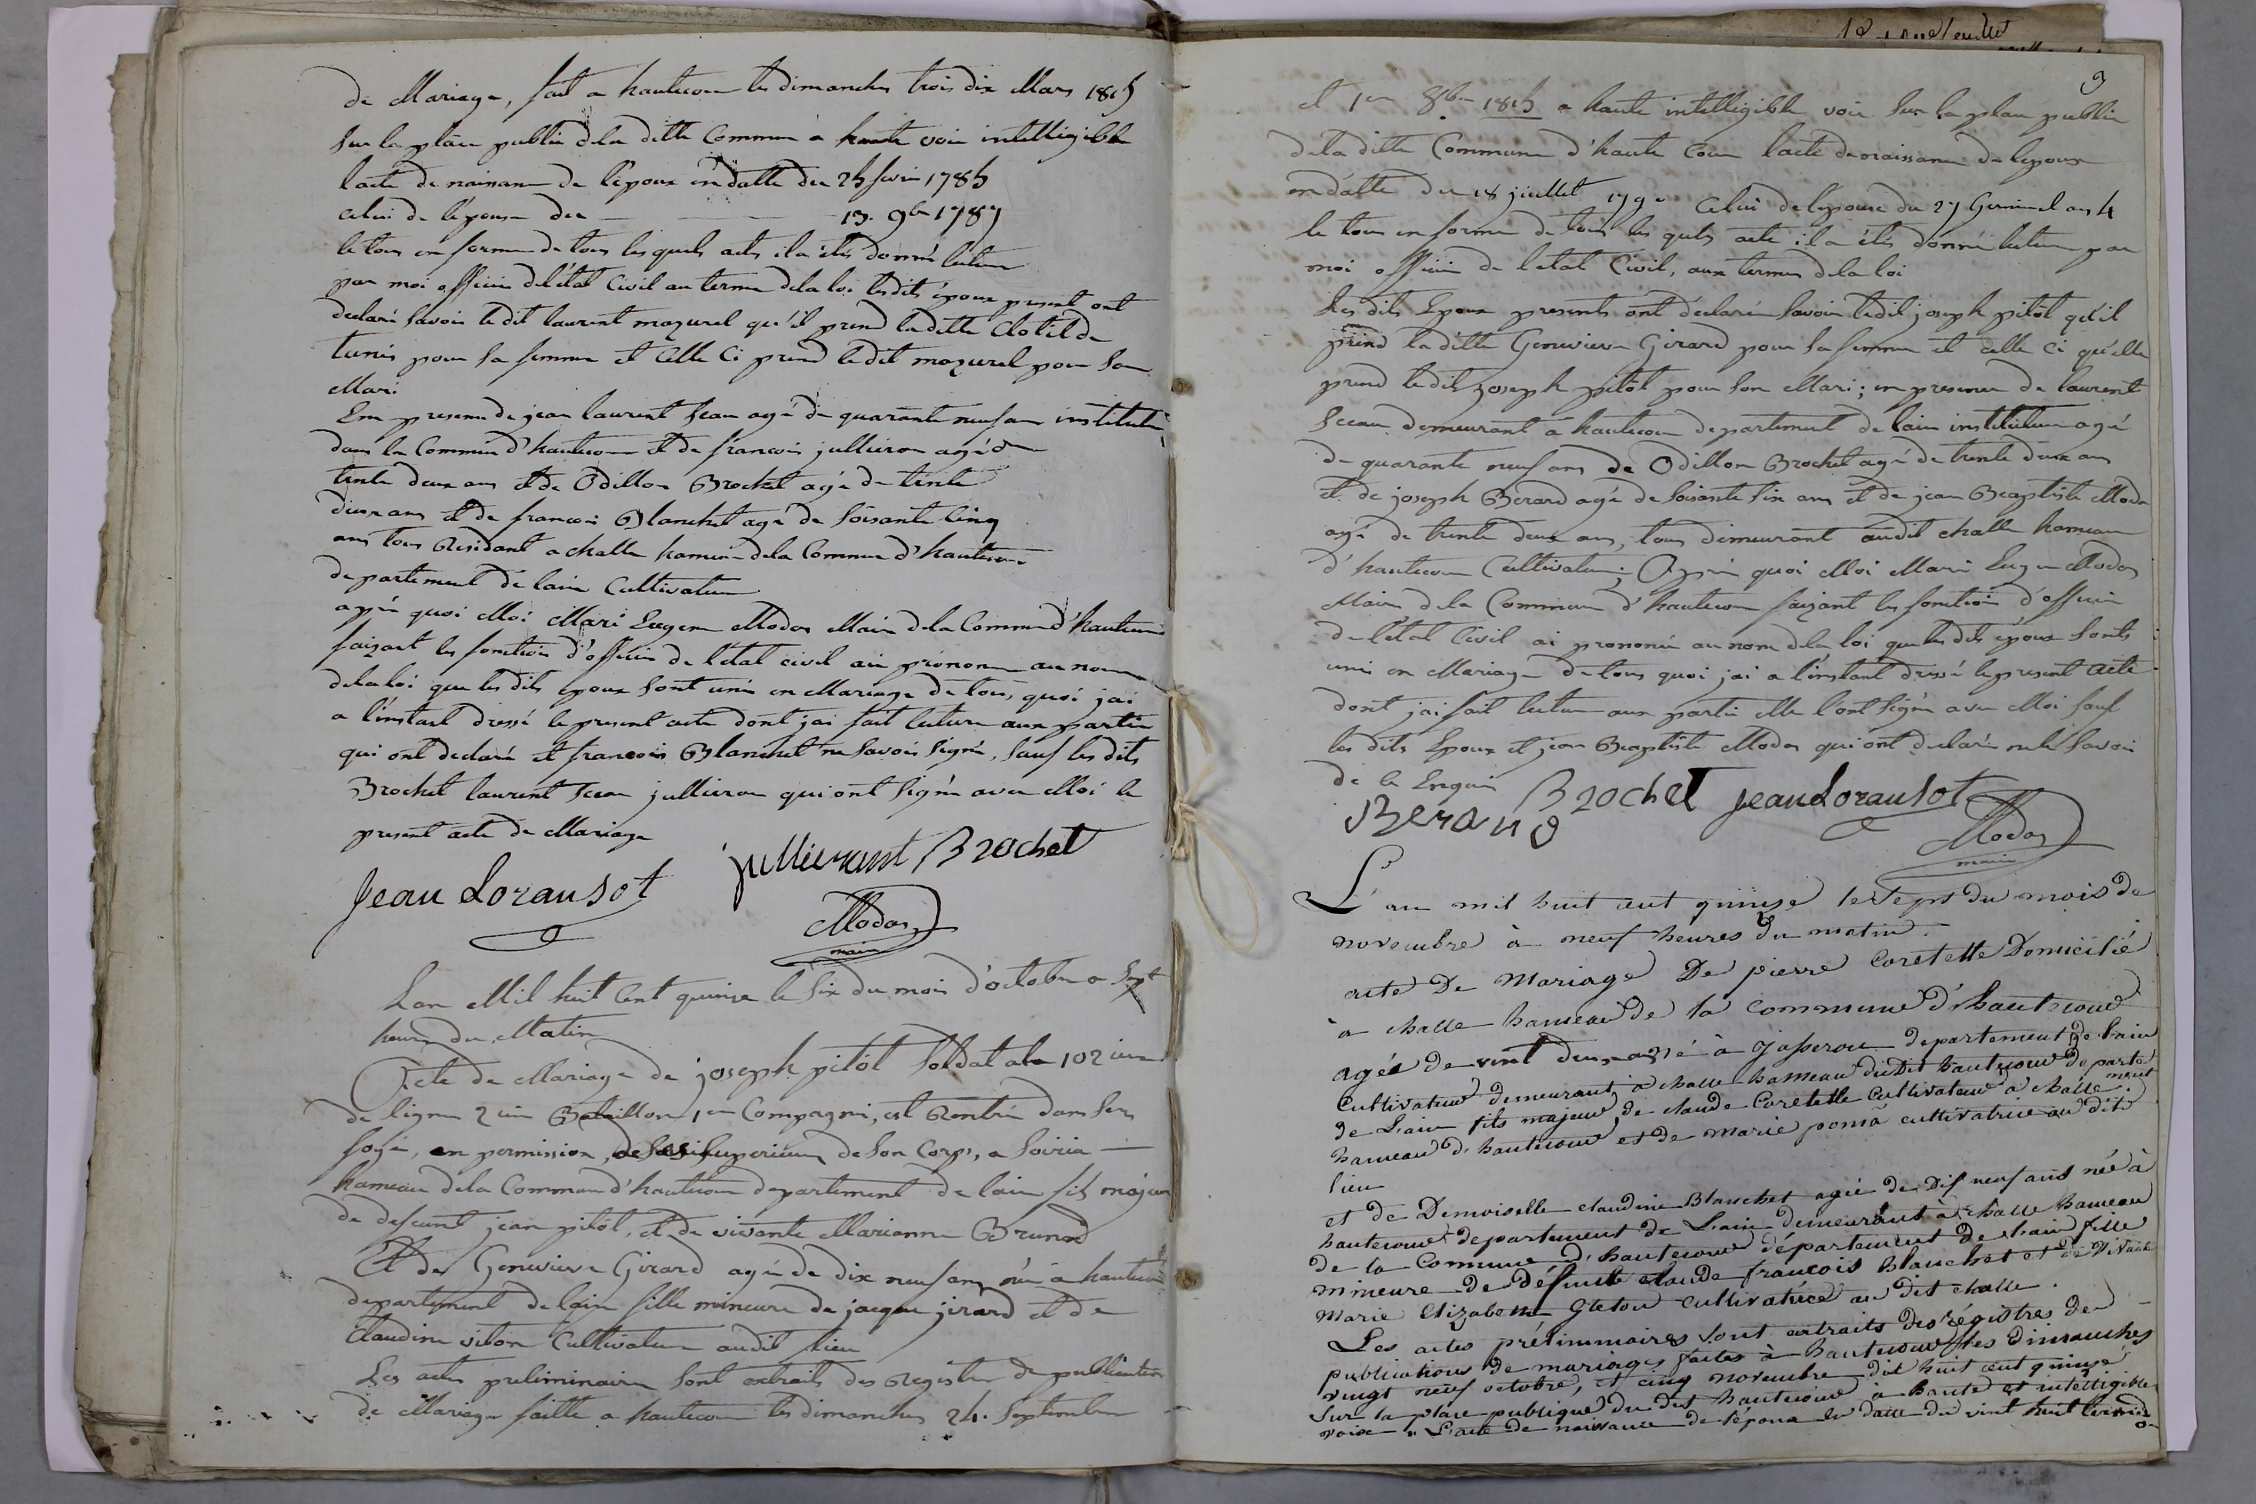 de Mariage, fait a hautecour les dimanches trois dix Mars 1815
Sur la place public de la ditte Commune a haute voix intelligible
lacte de naissance de l'epoux en datte du 25 fevrier 1785
celui de l'épouse du 13. 9bre 1787
le tous en forme de tous les quels acts il a étés donné lecture
par moi officier de l'état Civil au terme de la loi lesdits époux present ont
declaré savoir le dit laurent mazurel qu'il prend la ditte Clotilde
pour sa femme et Celle Ci prend le dit mazurel pour Son
Mari
En presence de jean laurent agé de quarante neuf an instituteur
dans la Commune d'hautecour et de francois jullieron agé de
trente deux ans et de Odillon Brochet agé de trente
deux ans et de francois Blanchet agé de Soisante Cinq
ans tous Residant a challe hameau de la Commune d'hautecour
departement de lain Cultivateur
apprè quoi Moi Mari Eugene Modas Maire de la Commune d'hautecour
faizant les fonction d'officier de l'etat civil ai prononcé au nom
de la loi que les dits epoux Sont unis en Mariage de tous quoi jai
a l'instant dressé le present acte dont jai fait lecture aux partie
qui ont declaré et francois Blanchet ne Savoir Signé, Sauf les dits
Brochet laurent jullieron qui ont Signé avec Moi le
present acte de Mariage
Jean Loransot jullierant Brochet
Modas
maire
Lan Mil huit Cent quinze le Six du mois d'octobre a Sept
heures du Matin
Acte de Mariage de joseph pitôt Soldat au 102 ieme
de ligne 2 iem Bataillon 1er Compagni, est Rentré dans Ses
foyé, en permission, de Ses Superieurs de Son Corps, a Soiria
hameau de la Commune d'hautecour departement de lain fils majeur
de defeunt jean pitôt, et de vivante Marianne Brunod
Et de Genevieve Girard agée de dix neuf ans née à hautecour
departement de lain fille mineure de jacque jirard et de
Claudine vibon Cultivateur audit lieu
Les actes preliminaire Sont extraits des Registre de publication
de Mariage faitte a hautecour les dimanches 24. Septembre
9
et 1er 8bre 1815 a haute intelligible voix Sur la place public
de la ditte Commune d'haute Cour lacte de naissance de lepoux
en datte du 18 juillet 179 Celui de lepouse du 27 Germinal an 4
le tous en forme de tous les quels acte il a étés donné lecture par
moi officier de letat Civil, aux termes de la loi
Les dits Epoux presents ont déclaré Savoir ledit joseph pitôt qu'il
prend la ditte Genevieve Girard pour Sa femme et celle Ci qu'elle
prend ledit joseph pitôt pour Son Mari; en presence de laurent
demeurant a hautecour departement de lain instituteur agé
de quarante neuf ans de Odillon Brochet agé de trente deux ans
et de joseph Berard agé de Soisante Six ans et de jean Baptiste Modas
agé de trente deux ans, tous demeurant audit challe hameau
d'hautecour Cultivateur; Apprè quoi Moi Mari Eugene Modas
Maire de la Commune d'hautecour faizant les fonction d'officier
de l'état Civil ai prononcé au nom de la loi que les dits époux Sonts
unis en Mariage de tous quoi jai a l'instant dressé le present acte
dont jai fait lecture aux partie elle l'ont Signé avec Moi Sauf
les dits Epoux et jean Baptiste Modas qui ont declaré ne le Savoir
de ce Enquis
Berard Brochet jean Loransot
Modas
maire
L'an mil huit cent quinze le sept du mois de
novembre à neuf heures du matin.
acte De Mariage De pierre Coretette Domicilié
à challe hameau de la commune d'hautecour
agée de vint deux né à Jasseron departement de l'ain
Cultivateur demeurant à challe hameau du Dit hautecour departement
de L'ain fils majeur de claude Coretette Cultivateur à challe
hameau d'hautecour et de marie ponsà cultivatrice au dit
lieu
et de Demoiselle claudine Blanchet agée de Dis neuf ans née à
hautecour departement de L'ain demeurant à challe hameau
de la Commune d'hautecour département de l'ain fille
mineure de Défunt claude francois blanchet et de Vivante
Marie Elizabeth Gletou cultivatrice au dit challe.
Les actes préliminaires sont extraits des régistres de
publications de mariages faites à hautecour les dimanches
vingt neuf octobre, et cinq novembre dix huit cent quinze
sur la place publique du dit hautecour à haute et intelligible
voix L'acte de naissance de l'époux en date du vint huit